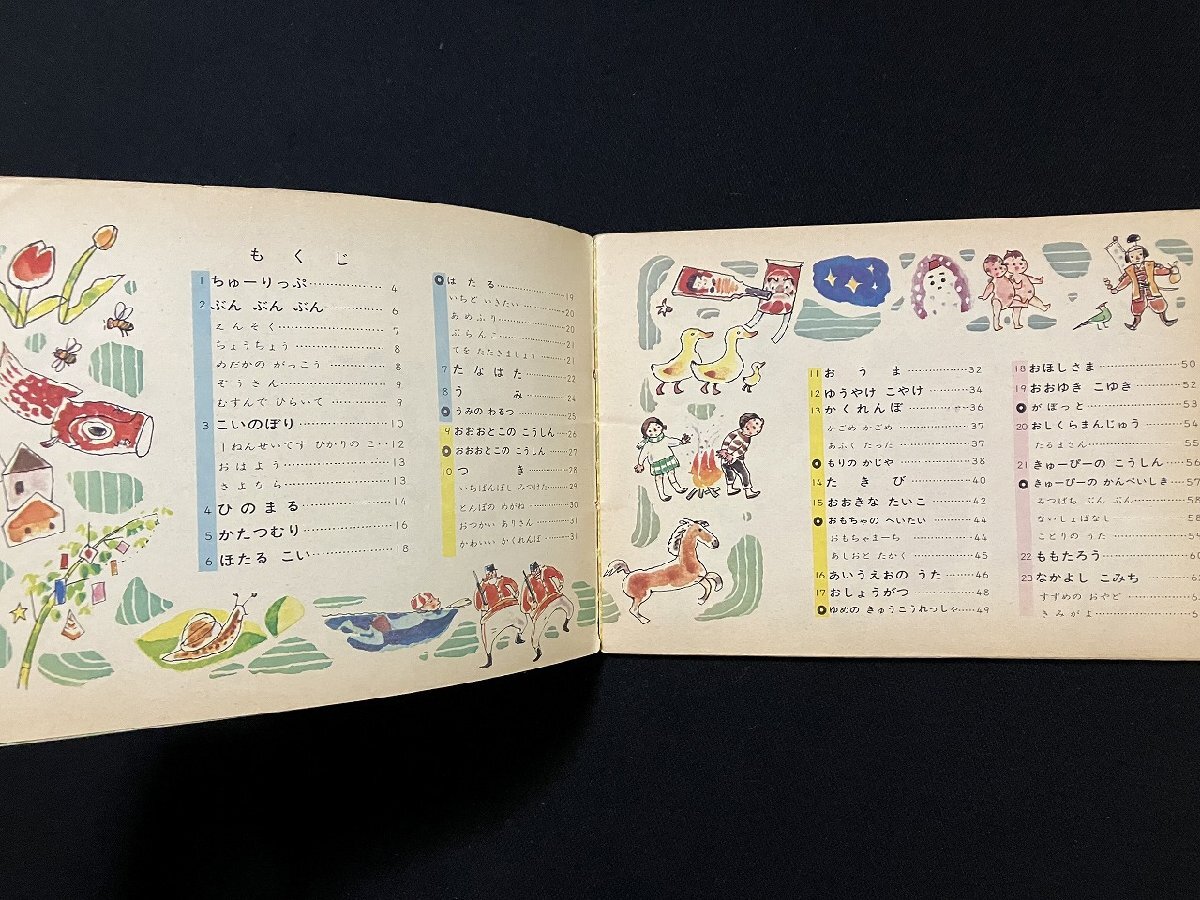 もくじ
1 ちゅーりっぷ…………4
2 ぶん ぶん ぶん…………6
えんそく…………7
ちょうちょう…………8
めだかの がっこう…………8
ぞうさん…………9
むすんで ひらいて…………9
3 こいのぼり…………10
1ねんせいです ひかりの こ…12
おはよう…………13
さよなら…………13
4 ひのまる…………14
5 かたつむり…………16
6 ほたる こい…………8
はたる…………19
いちど いきたい…………20
あめふり…………20
ぶらんこ…………21
てを たたきましょう…………21
7 たなばた…………22
8 うみ…………24
うみの わるつ…………25
9 おおおとこの こうしん…26
おおおとこの こうしん…27
0 つき…………28
いちばんぼし みつけた…………29
とんぼの めがね…………30
おつかい ありさん…………31
かわいい かくれんぼ…………31
11 おうま…………32
12 ゆうやけ こやけ…………34
13 かくれんぼ…………36
かごめ かごめ…………37
あぶく たった…………37
もりの かじや…………38
14 たきび…………40
15 おおきな たいこ…………42
おもちゃの へいたい…………44
おもちゃまーち…………44
あしおと たかく…………45
16 あいうえおの うた………46
17 おしょうがつ…………48
ゆめの きゅうこうれっしゃ…49
18 おほしさま…………50
19 おおゆき こゆき…………52
がぼっと…………53
20 おしくらまんじゅう…………54
だるまさん…………55
21 きゅーぴーの こうしん…56
きゅーぴーの かんぺいしき…57
みつばち ぶん ぶん…………58
ないしょばなし…………58
ことりの うた…………59
22 ももたろう…………6
23 なかよし こみち…………
すずめの おやど…………
きみがよ…………